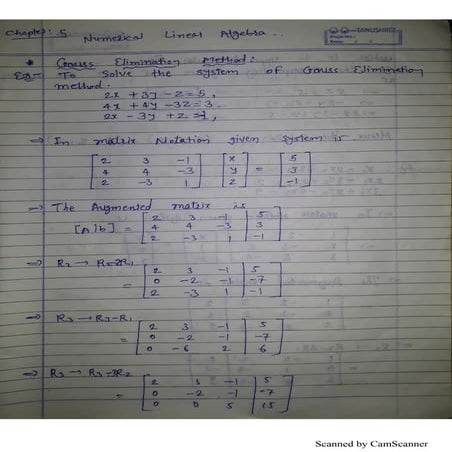 Chapter: 5 Numerical Linear Algebra..
TANUSHREE
* Gauss Elimination Method:
Eg:- To Solve the system of Gauss Elimination
method.
2x + 3y - z = 5,
4x + 4y - 3z = 3,
2x - 3y + z = -1,
⇒ In matrix Notation given system is
[ 2 3 -1 ] [ x ] [ 5 ]
[ 4 4 -3 ] [ y ] = [ 3 ]
[ 2 -3 1 ] [ z ] [ -1 ]
⇒ The Augmented matrix is
[ 2 3 -1 | 5 ]
[A|b] = [ 4 4 -3 | 3 ]
[ 2 -3 1 | -1 ]
⇒ R2 → R-2R1
[ 2 3 -1 | 5 ]
= [ 0 -2 -1 | -7 ]
[ 2 -3 1 | -1 ]
⇒ R3 → R3-R1
[ 2 3 -1 | 5 ]
= [ 0 -2 -1 | -7 ]
[ 0 -6 2 | 6 ]
⇒ R3 → R3-3R2
[ 2 3 -1 | 5 ]
= [ 0 -2 -1 | -7 ]
[ 0 0 5 | 15 ]
Scanned by CamScanner